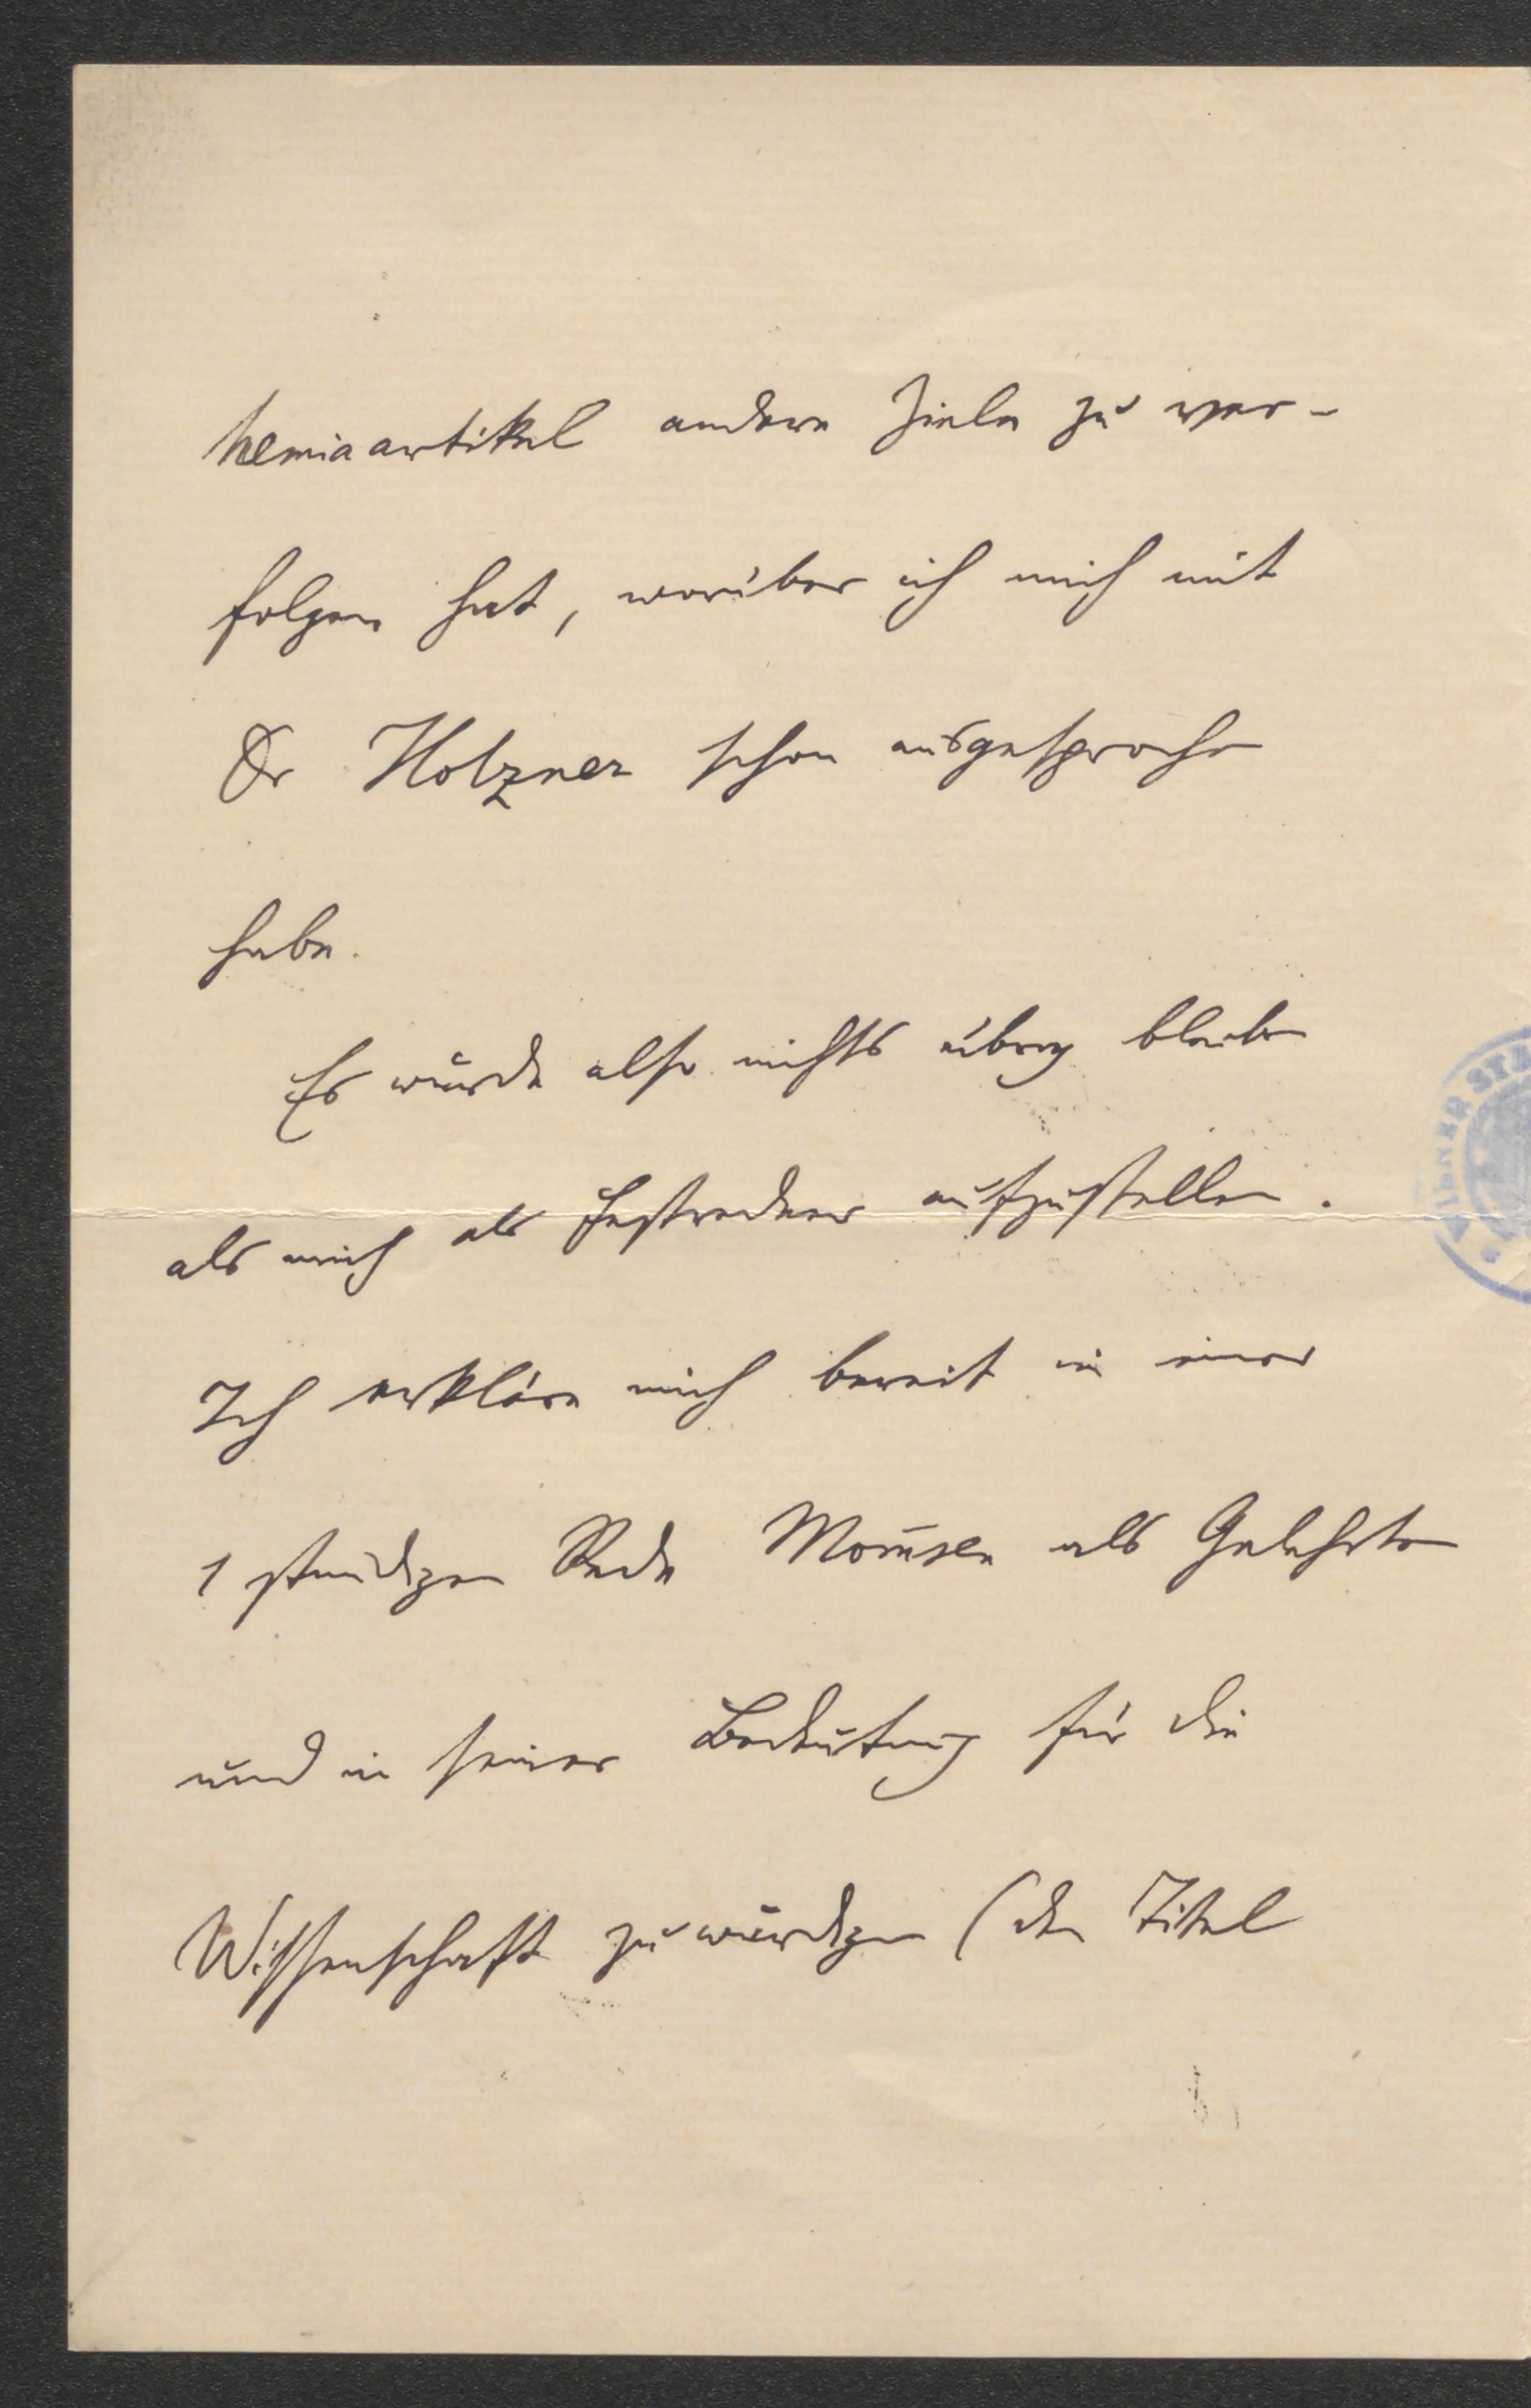 hemiaartikel andere Ziele zu ver-
folgen hat, worüber ich mich mit
Dr Holzner schon ausgesprochen
habe.
Es würde also nichts übrig bleiben
als mich als Festredner aufzustellen.
Ich erkläre mich bereit in einer
1 stündigen Rede Mom̅sen als Gelehrten
und in seiner Bedeutung für die
Wissenschaft zu würdigen (den Titel